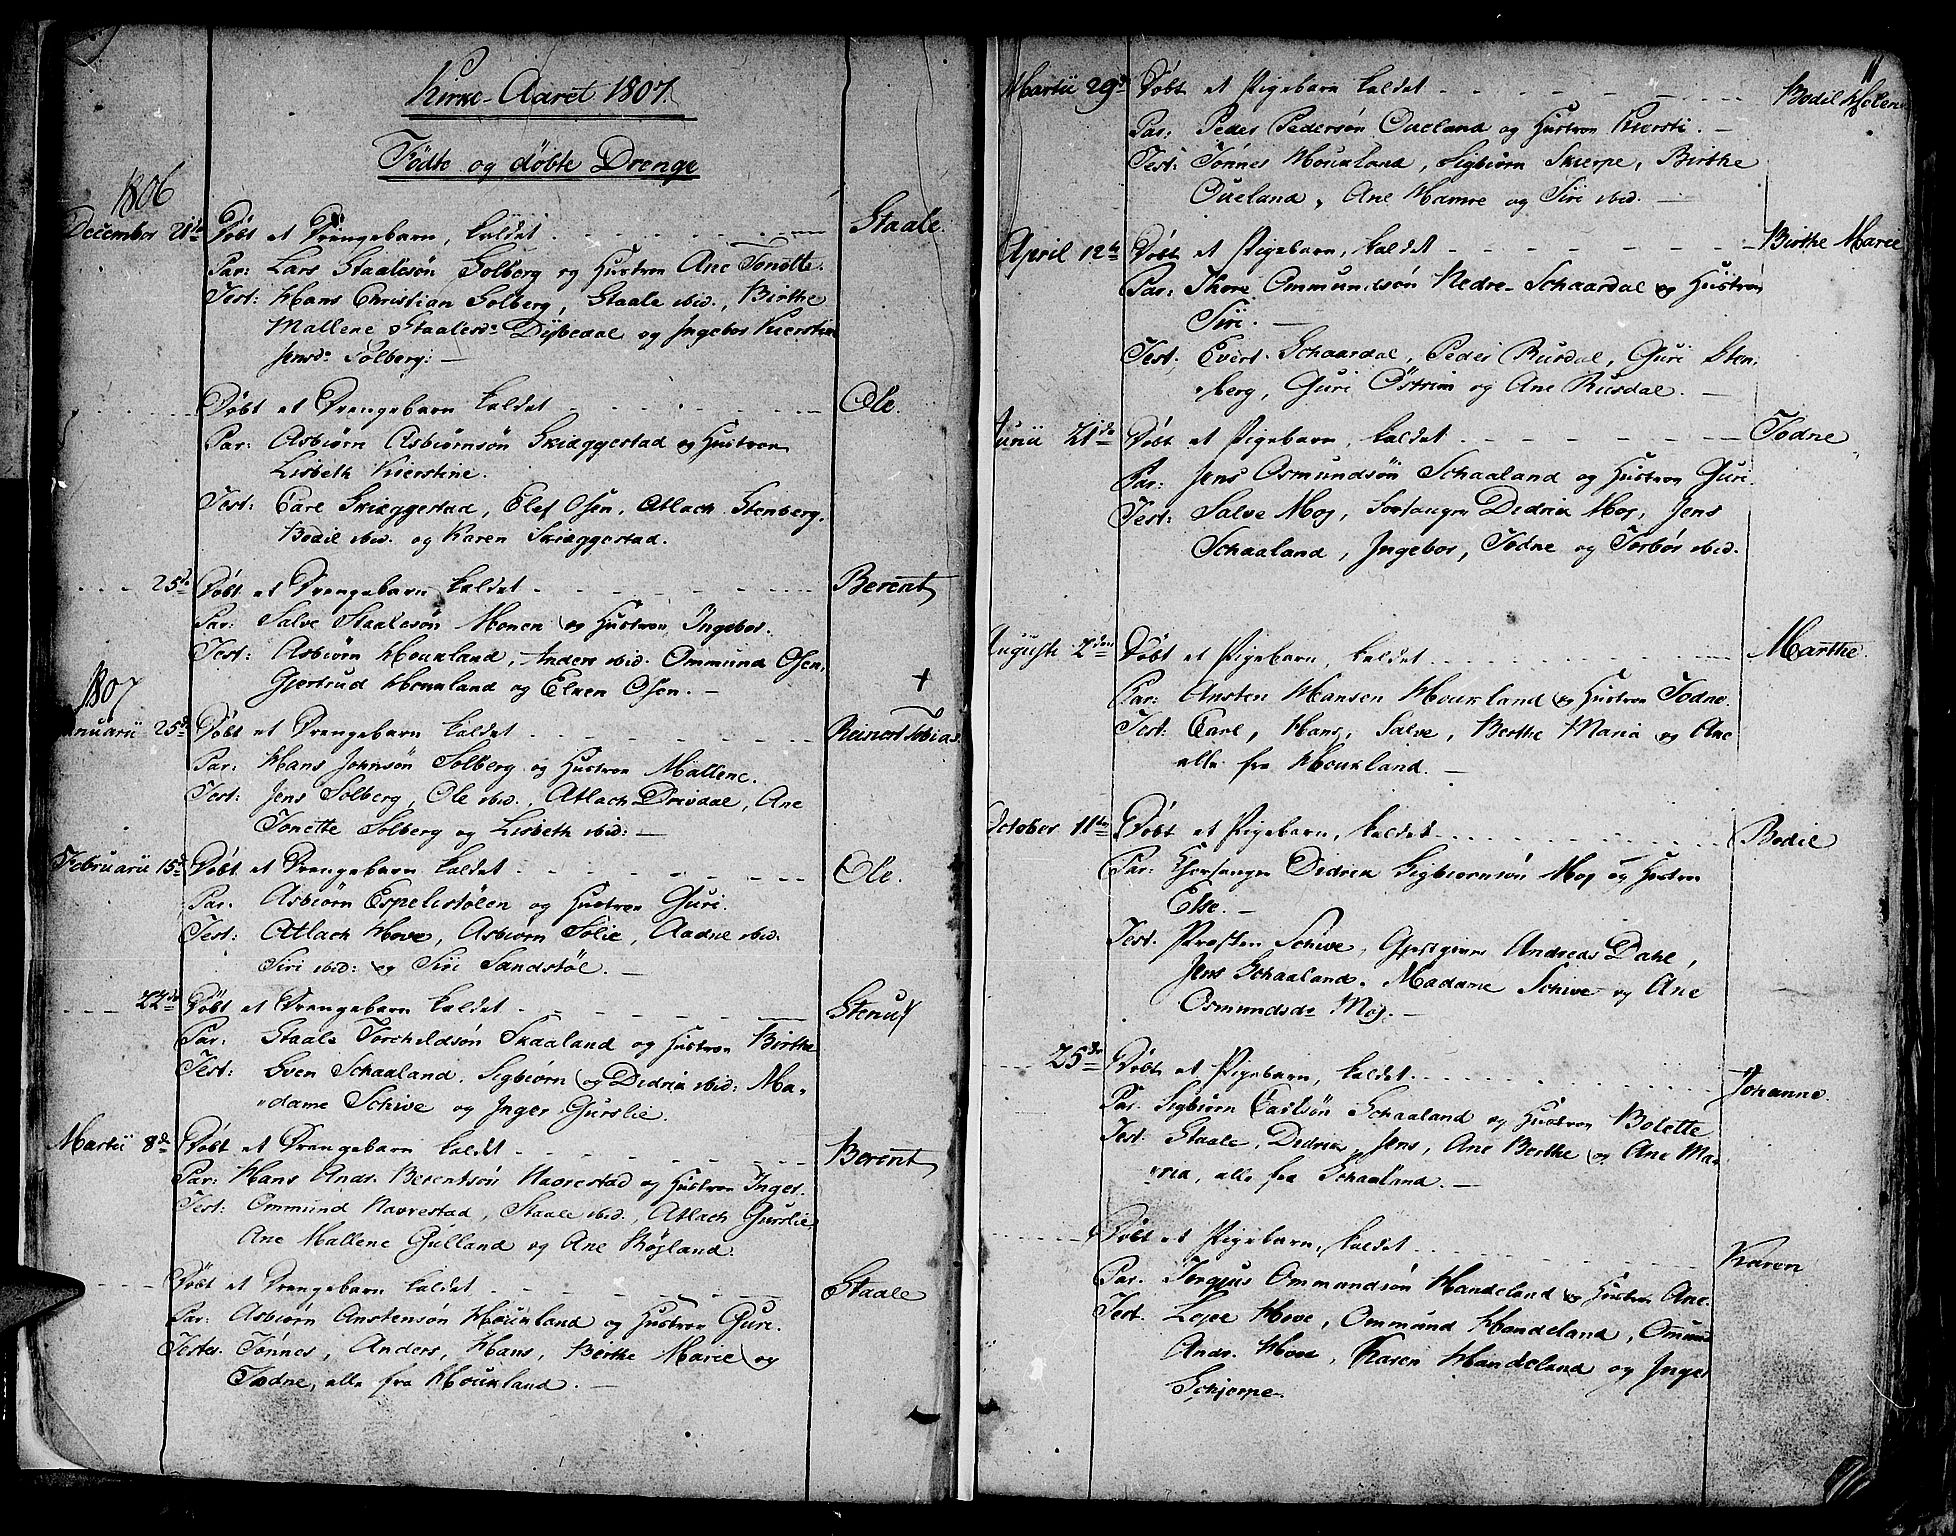 Kirke-Aaret 1807.
Födte og döbte Drenge
1806
December 21de Döbt et Drengebarn, kaldet Staale.
Par: Lars Staalesön Solberg og Hustroe Ane Tonette.
Test: Hans Christian Solberg, Staale ibid., Birthe
Mallene Staalesd: Dybedal og Ingebor Kierstine
Jensd: Solberg:
Döbt et Drengebarn kaldet Ole.
Par: Asbiörn Asbiörnsön Skiæggestad og Hustroe
Lisbeth Kierstine.
Test: Carl Skiæggestad, Elef Osen, Atlach Stenberg,
Bodil ibid. og Karen Skiæggestad.
25de Döbt et Drengebarn, kaldet Berent
Par: Salve Staalesön Monen og Hustroe Ingebor.
Test: Asbiörn Houkland, Anders ibid. Ommund Osen,
Gjertrud Houkland og Elken Osen.
1807 +
Januarii 25de Döbt et Drengebarn kaldet Reinert Tobias.
Par: Hans Johnsön Solberg og Hustroe Mallene.
Test: Jens Solberg, Ole ibid., Atlach Drivdal, Ane
Tonette Solberg og Lisbeth ibid:
Februarii 15de Döbt et Drengebarn kaldet Ole.
Par. Asbiörn Espelistölen og Hustroe Guri.
Test: Atlach Hove, Asbiörn Solie, Aadne ibid.
Siri ibid: og Siri Sandstöl.
22de Döbt et Drengebarn kaldet
Par: Staale Torchildsön Skaaland og Hustroe Birthe
Test: Sven Schaaland, Sigbiörn og Didrik ibid: Ma-
dame Schive og Inger Gurslie.
Martii 8de Döbt et Drengebarn kaldt Berent
Par: Hans Andr. Berentsön Navrestad og Hustroe Inger.
Test: Ommund Navrestad, Staale ibid., Atlach Gurslie,
Ane Mallene Gulland og Ane Röjland.
Döbt et Drengebarn kaldet Staale
Par: Asbiörn Anstensön Houkland og Hustroe Guri.
Testes: Tönnes, Anders, Hans, Berthe Marie og
Todne, alle fra Houkland.
11
Martii 29de Döbt et Pigebarn kaldet Bodil Helene
Par: Peder Pedersön Oueland og Hustroe Kiersti.
Test: Tönnes Houkland, Sigbiörn Skierpe, Birthe
Oueland, Ane Hamre og Siri ibid.
April 12te Döbt et Pigebarn, kaldet Birthe Marie
Par: Thore Ommundsön Nedre-Schaardal og Hustroe
Siri.
Test: Evert Schaardal, Peder Rusdal, Guri Sten-
berg, Guri Östrim og Ane Rusdal.
Junii 21de Döbt et Pigebarn, kaldet Todne
Par: Jens Osmundsön Schaaland og Hustroe Guri.
Test: Salve Moj, Forsanger Didrik Moj, Jens
Schaaland, Ingebor, Todne og Torbor ibid.
Augusti 2den Döbt et Pigebarn, kaldet Marthe.
Par: Ansten Hansen Houkland og Hustroe Todne.
Test: Carl, Hans, Salve, Berthe Maria og Ane
alle fra Houkland.
October 11te Döbt et Pigebarn, kaldet Bodil
Par: Didrik Sigbiörnsön Moj og Hustroe
Else.
Test. Præsten Schive, Gjestgiver Andreas Dahl,
Jens Schaaland, Madame Schive og Ane
Osmundsd: Moj.
25de Döbt et Pigebarn, kaldet Johanne
Par. Sigbiörn Carlsön Schaaland og Hustroe Bolette
Test: Staale, Didrik, Jens, Ane Berthe og Ane Ma-
ria, alle fra Schaaland.
Döbt et Pigebarn, kaldet Karen
Par. Torgjus Ommundsön Handeland og Hustroe Ane.
Test. Hove, Ommund Handeland, Omund
Andr. Hove, Karen Handeland og Inger
Schjerpe.